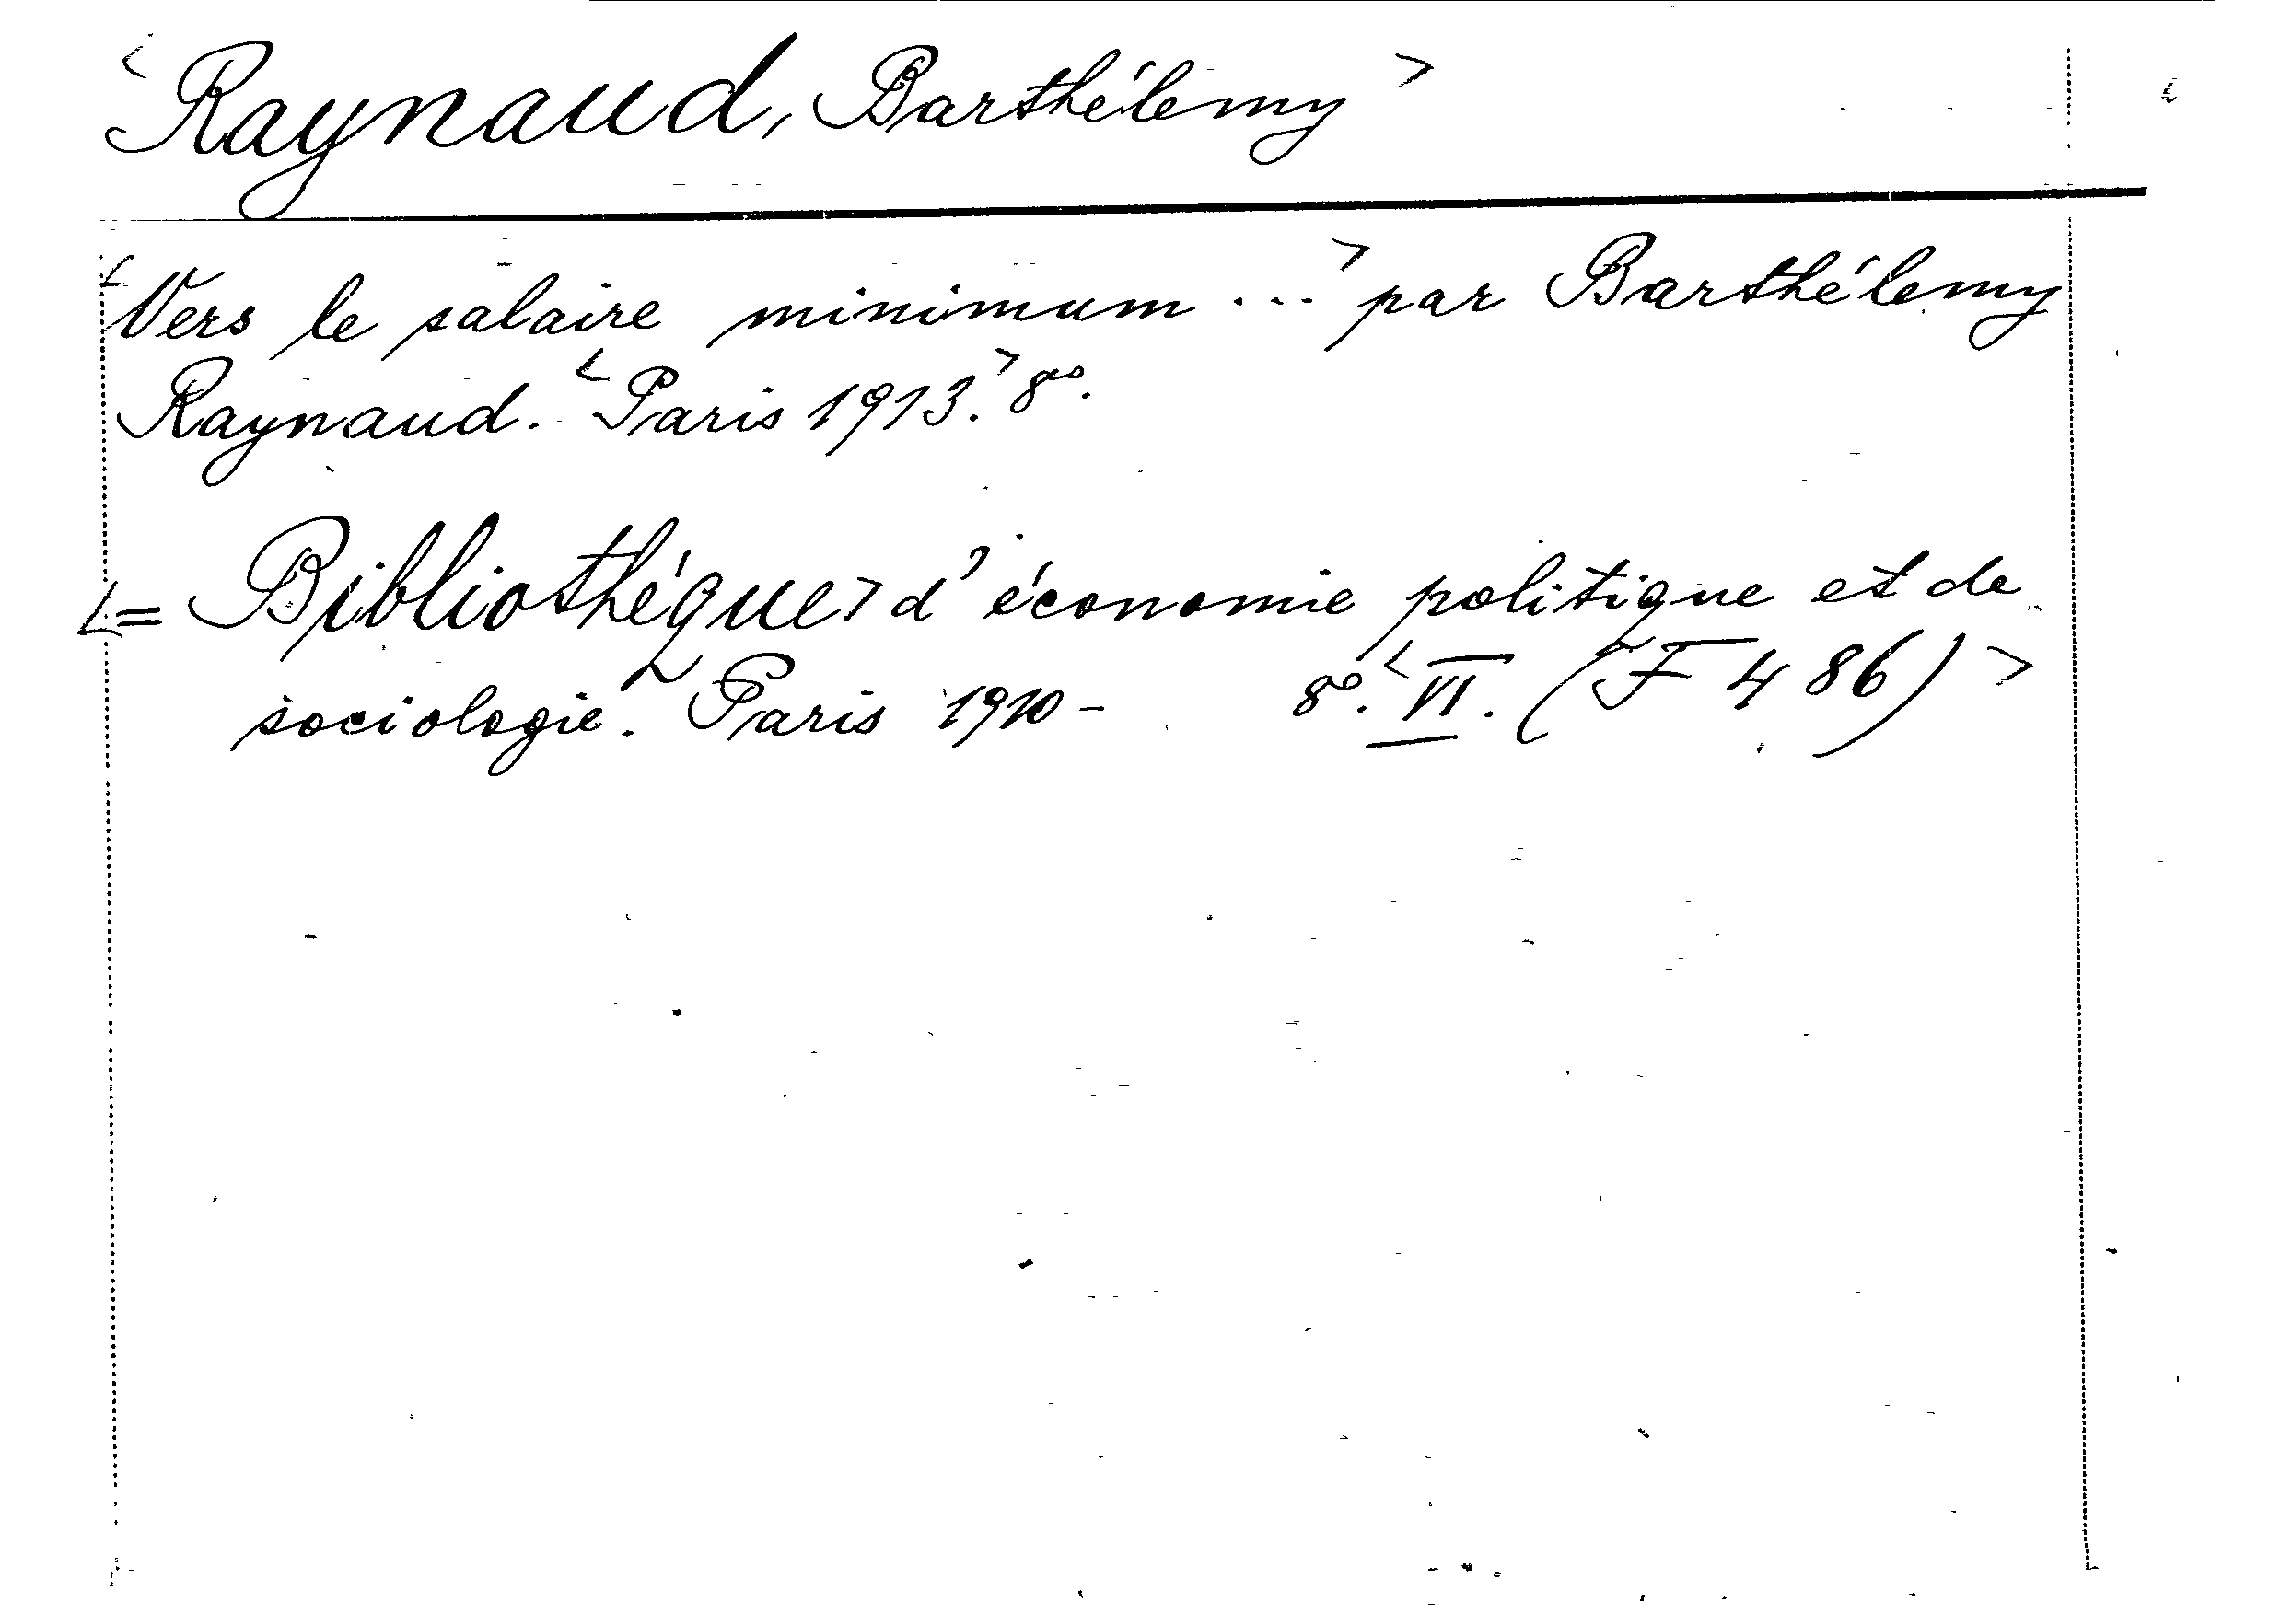 <Raynaud, Barthélemy>
<Vers le salaire minimum ...> par Barthélemy
Raynaud. <Paris 1913.> 8°.
<= Bibliothèque> d'économie politique et de
sociologie. Paris 1910- 8°. <VI. (F 486)>